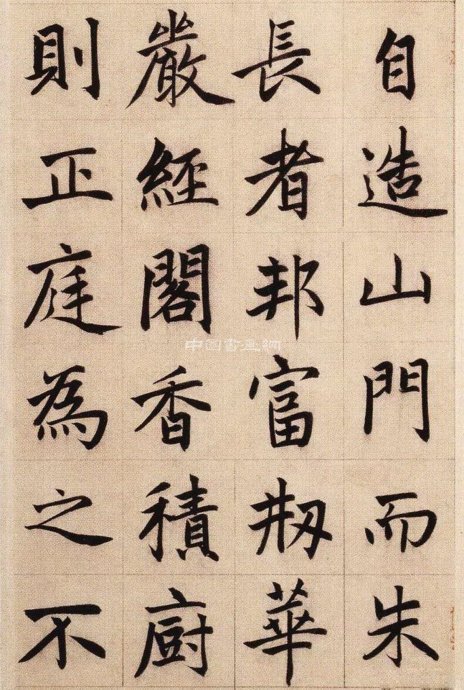 自造山門而朱
長者邦富刱華
嚴經閣香積廚
則正庭為之不
中国書画網